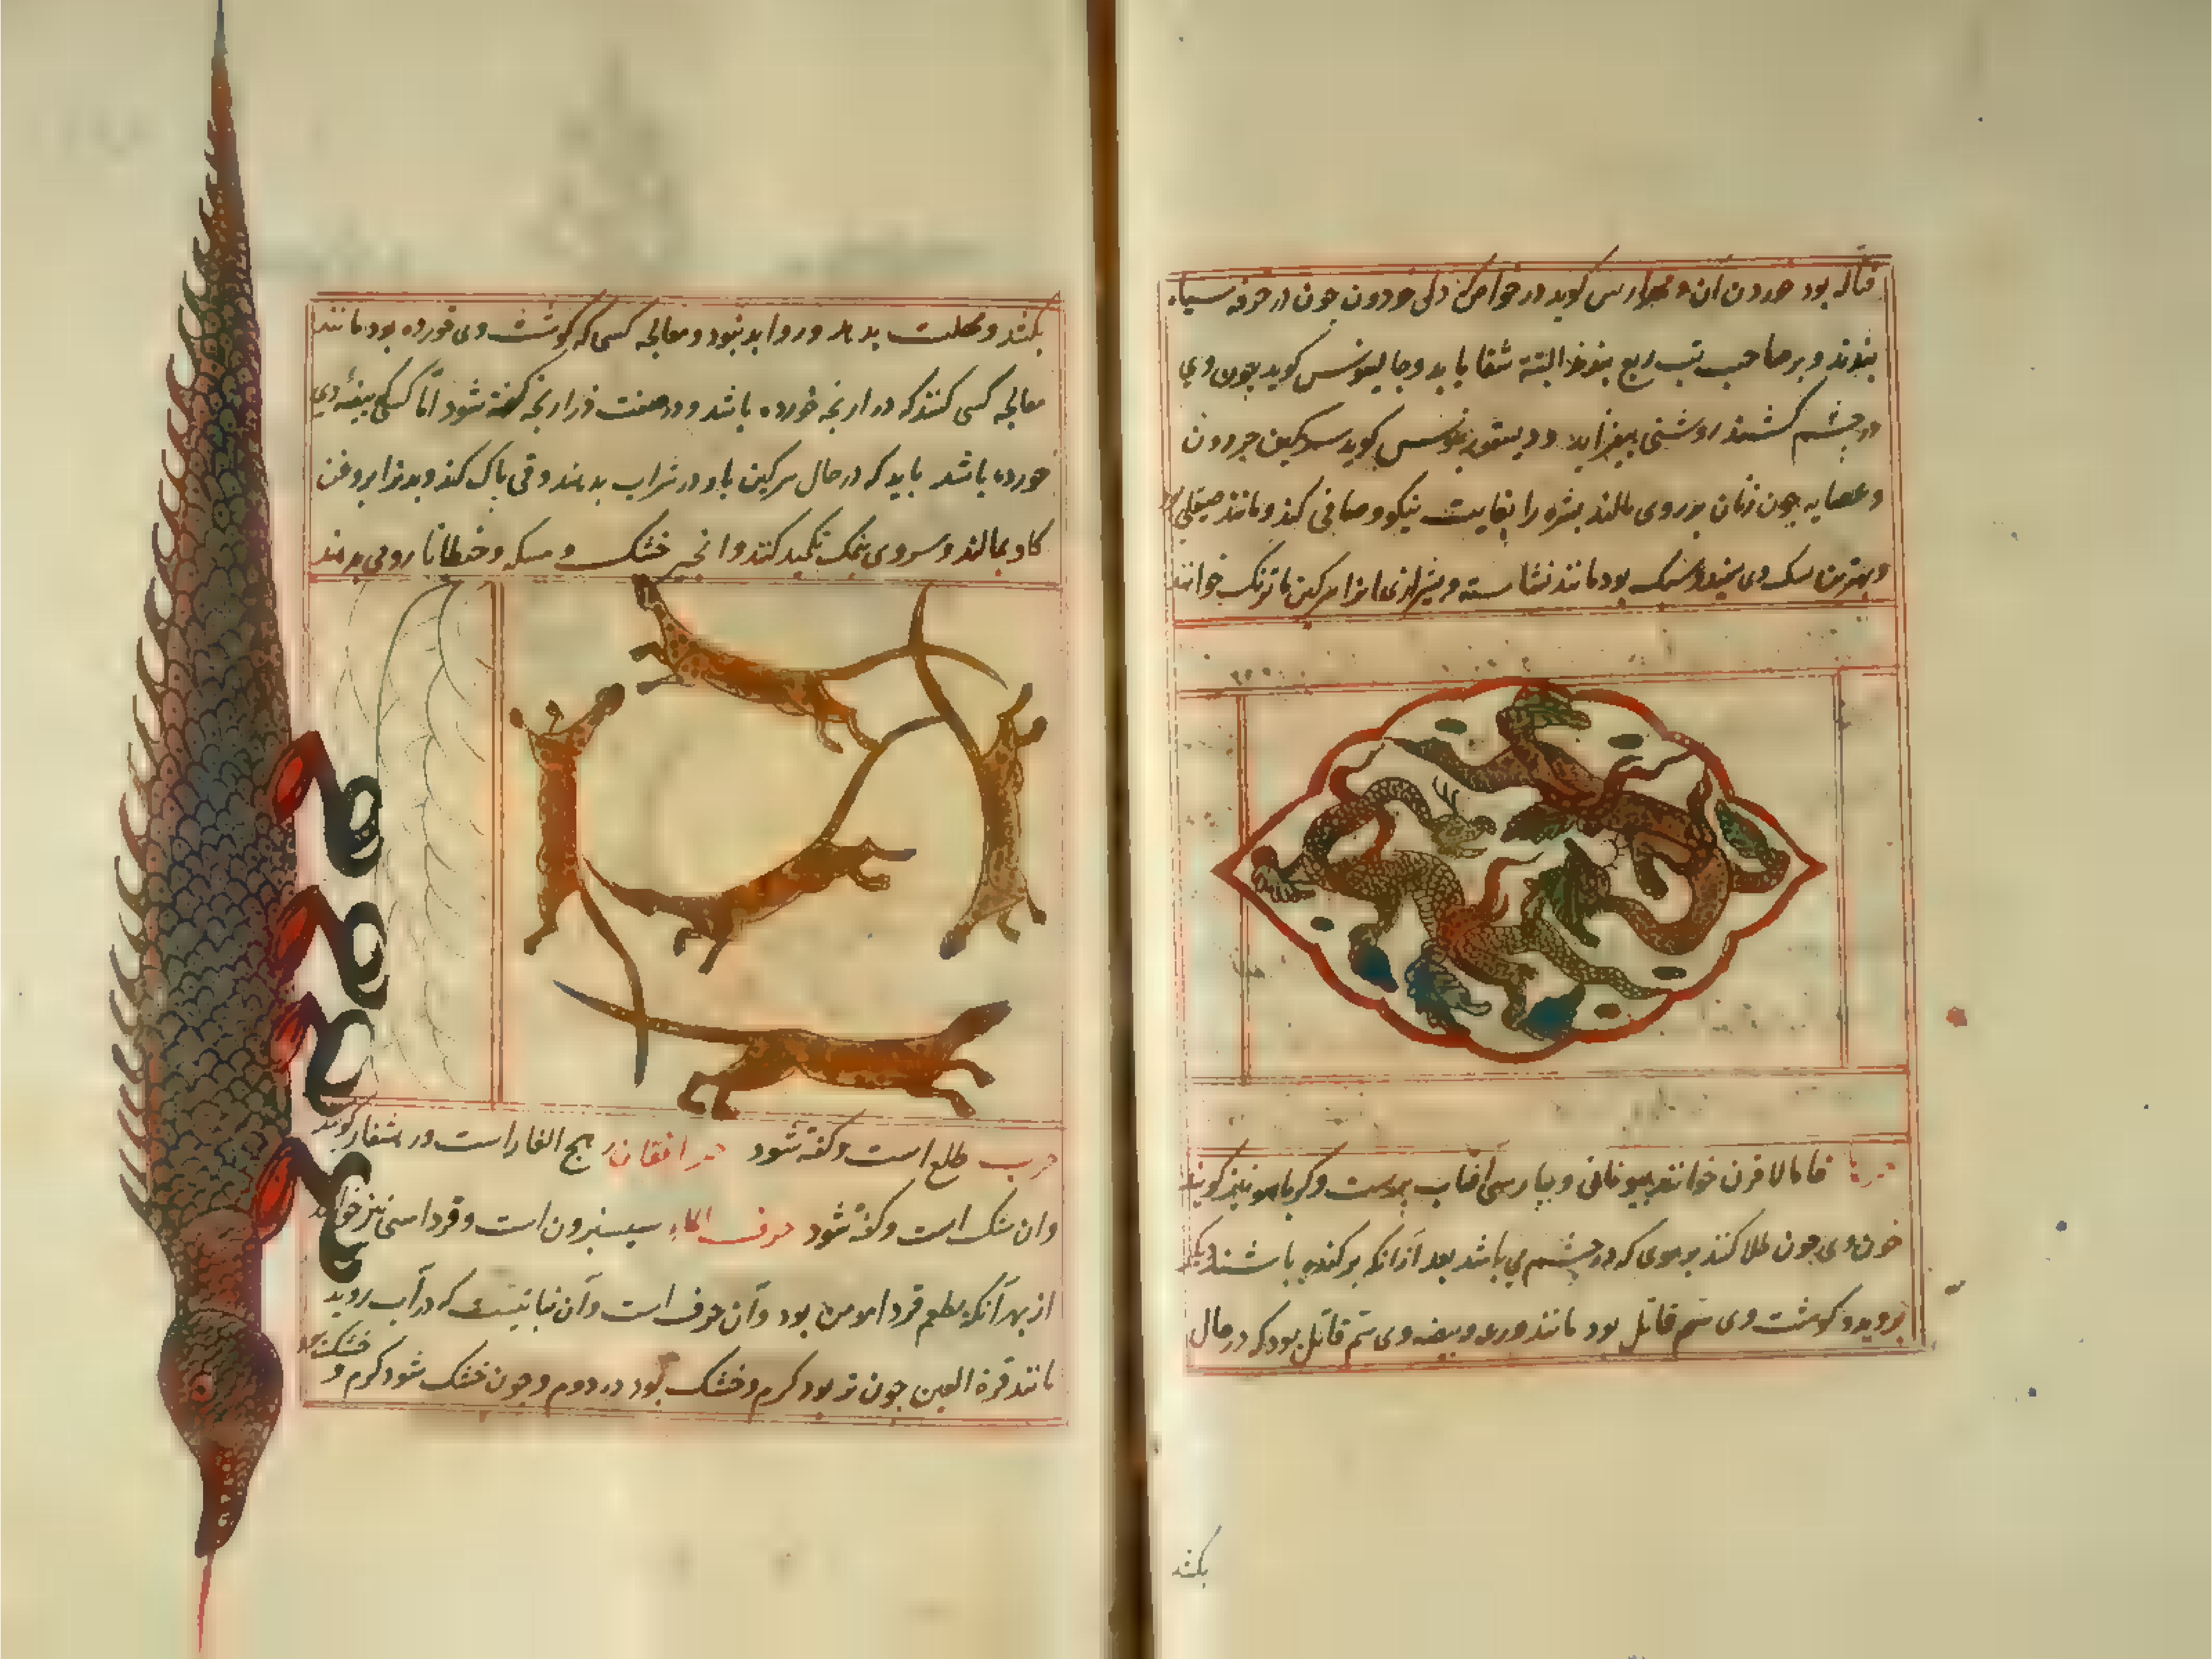 قتاله بود خوردن آن و مهرارس کوید در خواص که دل حردون چون در خرقه سیاه
بندند و بر صاحب تب ربع بندند البته شفا یابد و جالینوس کوید چون وی
در چشم کشند روشنی بیفزاید و دیسقوریدوس کوید سرکین حردون
و عصایه چون زنان بر روی مالند بشره را بغایت نیکو و صافی کند و مانند صیقلی بود
و بهترین سک وی سفید و سبک بود مانند نشاسته و شیرازی انرا سرکین ماترنک خوانند
حربا خامالاون خوانند بیونانی و بپارسی آفتاب پرست و کرباسو نیز کویند
خون وی چون طلا کنند بر موی که در چشم می باشد بعد از آنکه برکنده باشند دیکر
نروید و کوشت وی سم قاتل بود مانند وزغ و بیضه وی سم قاتل بود که در حال
بکشد
بکشد و مهلت بدهد و روا بد نبود و معالجه کسی که کوشت وی خورده بود مانند
معالجه کسی کنند که ذراریح خورده باشد و در صفت ذراریح کفته شود اما کسیکه بیضهٔ وی
خورده باشد باید که در حال سرکین باز در شراب بدهند و قی پاک کند و بدنرا بروغن
کاو بمالند و سر وی بنمک تکمید کنند و انجیر خشک و مسکه و خطیانا رومی بدهند
حرب طلع است و کفته شود حرافقان رهج الفار است و شفار کویند
وان شک است و کفته شود حرف الماء سیسنبرون است و قردامی نیز خوانند
از بهر آنکه بطعم قردامومن بود و آن حرف است و آن نباتیست که در آب روید
مانند قرة العین چون تر بود کرم و خشک بود در دوم و چون خشک شود کرم و
خشک بود